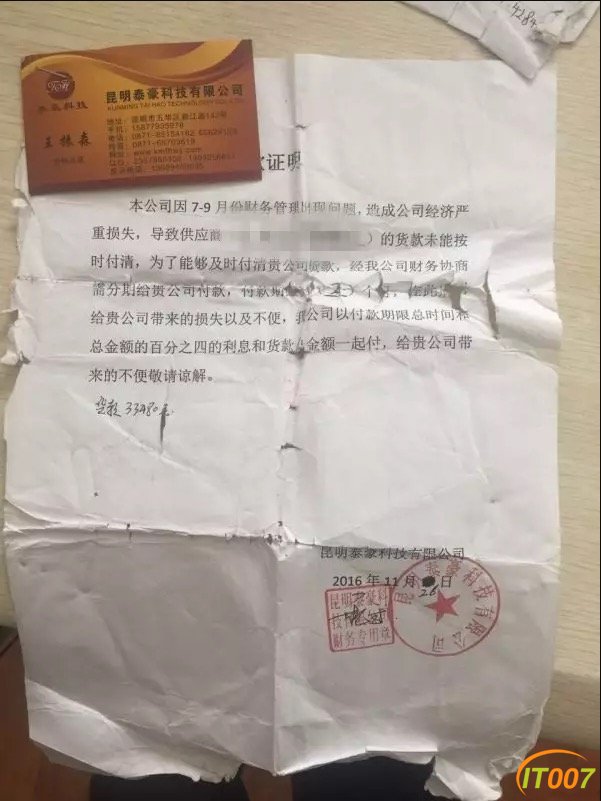 4284
昆明泰豪科技有限公司
KUNMING TAI HAO TECHNOLOGY
泰豪科技
地址:昆明市五华区
手机:15877935978
电话:0871-65154162
传真:0871-65703619
证明
本公司因7-9月份财务管理出现问题,造成公司经济严
重损失,导致供应 )的货款未能按
时付清,为了能够及时付清贵公司货款,经我公司财务协商
需分期给贵公司付款,付款期 个月,在此
给贵公司带来的损失以及不便, 公司以付款期限总时间和
总金额的百分之四的利息和货款 金额一起付,给贵公司带
来的不便敬请谅解。
货款33480元
昆明泰豪科技有限公司
2016年11月26日
昆明泰豪科技有限公司
昆明泰豪科
技
财务专用章
IT007